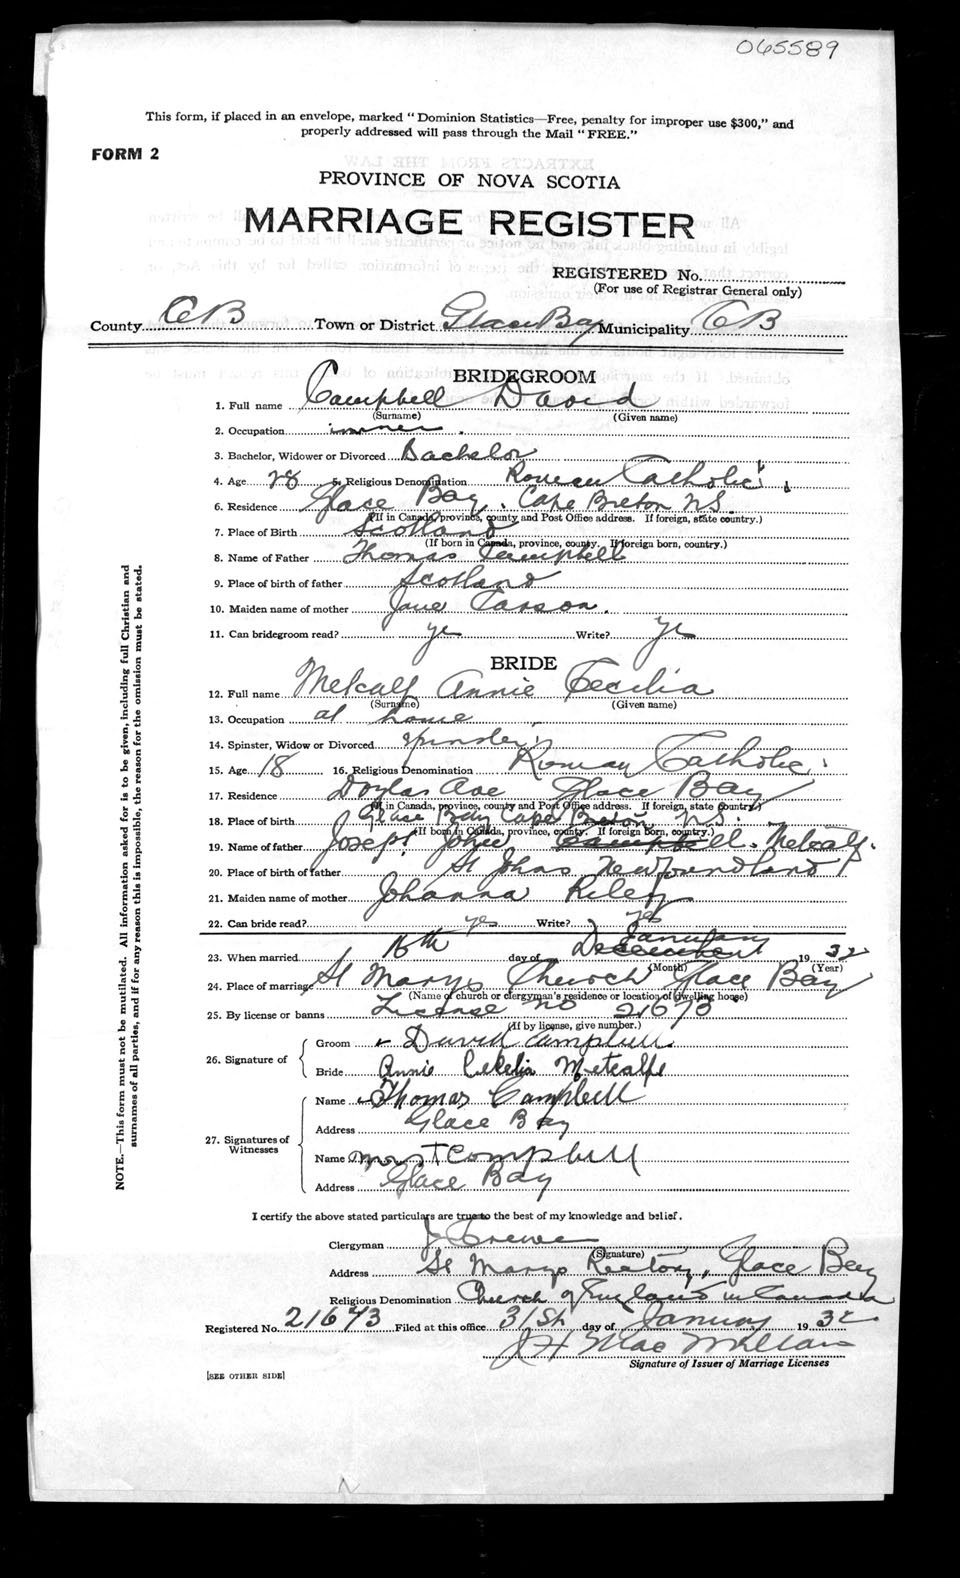 065589
This form, if placed in an envelope, marked "Dominion Statistics—Free, penalty for improper use $300," and
properly addressed will pass through the Mail "FREE."
FORM 2
PROVINCE OF NOVA SCOTIA
MARRIAGE REGISTER
REGISTERED No.
(For use of Registrar General only)
County CB Town or District Glace Bay Municipality CB
BRIDEGROOM
1. Full name Campbell David
(Surname) (Given name)
2. Occupation
3. Bachelor, Widower or Divorced Bachelor
4. Age 28 5. Religious Denomination Roman Catholic
6. Residence Glace Bay, Cape Breton NS.
(If in Canada, province, county and Post Office address. If foreign, state country.)
7. Place of Birth Scotland
(If born in Canada, province, county. If foreign born, country.)
8. Name of Father Thomas Campbell
9. Place of birth of father Scotland
10. Maiden name of mother Jane Carson.
11. Can bridegroom read? yes Write? yes
BRIDE
12. Full name Metcalf Annie Cecilia
(Surname) (Given name)
13. Occupation at home
14. Spinster, Widow or Divorced spinster
15. Age 18 16. Religious Denomination Roman Catholic
17. Residence Douglas Ave Glace Bay
(If in Canada, province, county and Post Office address. If foreign, state country.)
18. Place of birth Glace Bay Cape Breton N.S.
(If born in Canada, province, county. If foreign born, country.)
19. Name of father Joseph John Campbell. Metcalf.
20. Place of birth of father St Johns Newfoundland
21. Maiden name of mother Johanna Riley
22. Can bride read? yes Write? yes
January
23. When married 16th day of December 1932
(Month) (Year)
24. Place of marriage St Marys Church Glace Bay
(Name of church or clergyman's residence or location of dwelling house)
25. By license or banns License no 21673
(If by license, give number.)
26. Signature of Groom David Campbell
Bride Annie Cekelia Metcalfe
27. Signatures of Witnesses Name Thomas Campbell
Address Glace Bay
Name Mrs T Campbell
Address Glace Bay
I certify the above stated particulars are true to the best of my knowledge and belief.
Clergyman
(Signature)
Address St Marys Rectory, Glace Bay
Religious Denomination Church of England in Canada
Registered No. 21673 Filed at this office 31st day of January 1932
J H MacMillan
Signature of Issuer of Marriage Licenses
[SEE OTHER SIDE]
NOTE.—This form must not be mutilated. All information asked for is to be given, including full Christian and
surnames of all parties, and if for any reason this is impossible, the reason for the omission must be stated.